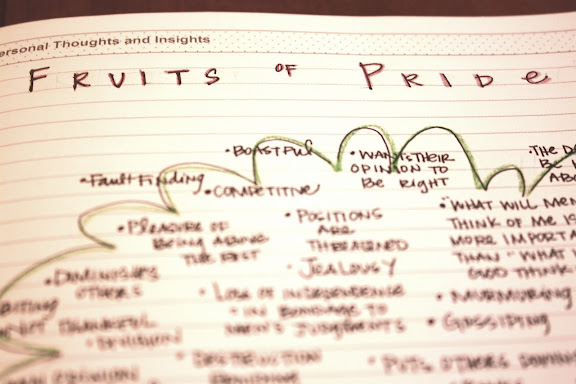 ersonal Thoughts and Insights
FRUITS OF PRIDE
• BOASTFUL
• WANTS THEIR
OPINION TO
BE RIGHT
• THE D
BE
ABO
• Fault Finding
• COMPETITIVE
• PLEASURE OF
BEING ABOVE
THE REST
• POSITIONS
ARE
THREATENED
• JEALOUSY
• "WHAT WILL MEN
THINK OF ME IS
MORE IMPORTA
THAN "WHAT
GOD THINK
• DIMINISHES
OTHERS
• LOSS OF INDEPENDENCE
- IN BONDAGE TO
MEN'S JUDGMENTS
• MURMURING
• GOSSIPING
NOT THANKFUL
• DIVISION
• DESTRUCTION
• PUTS OTHERS DOWN
OPINION